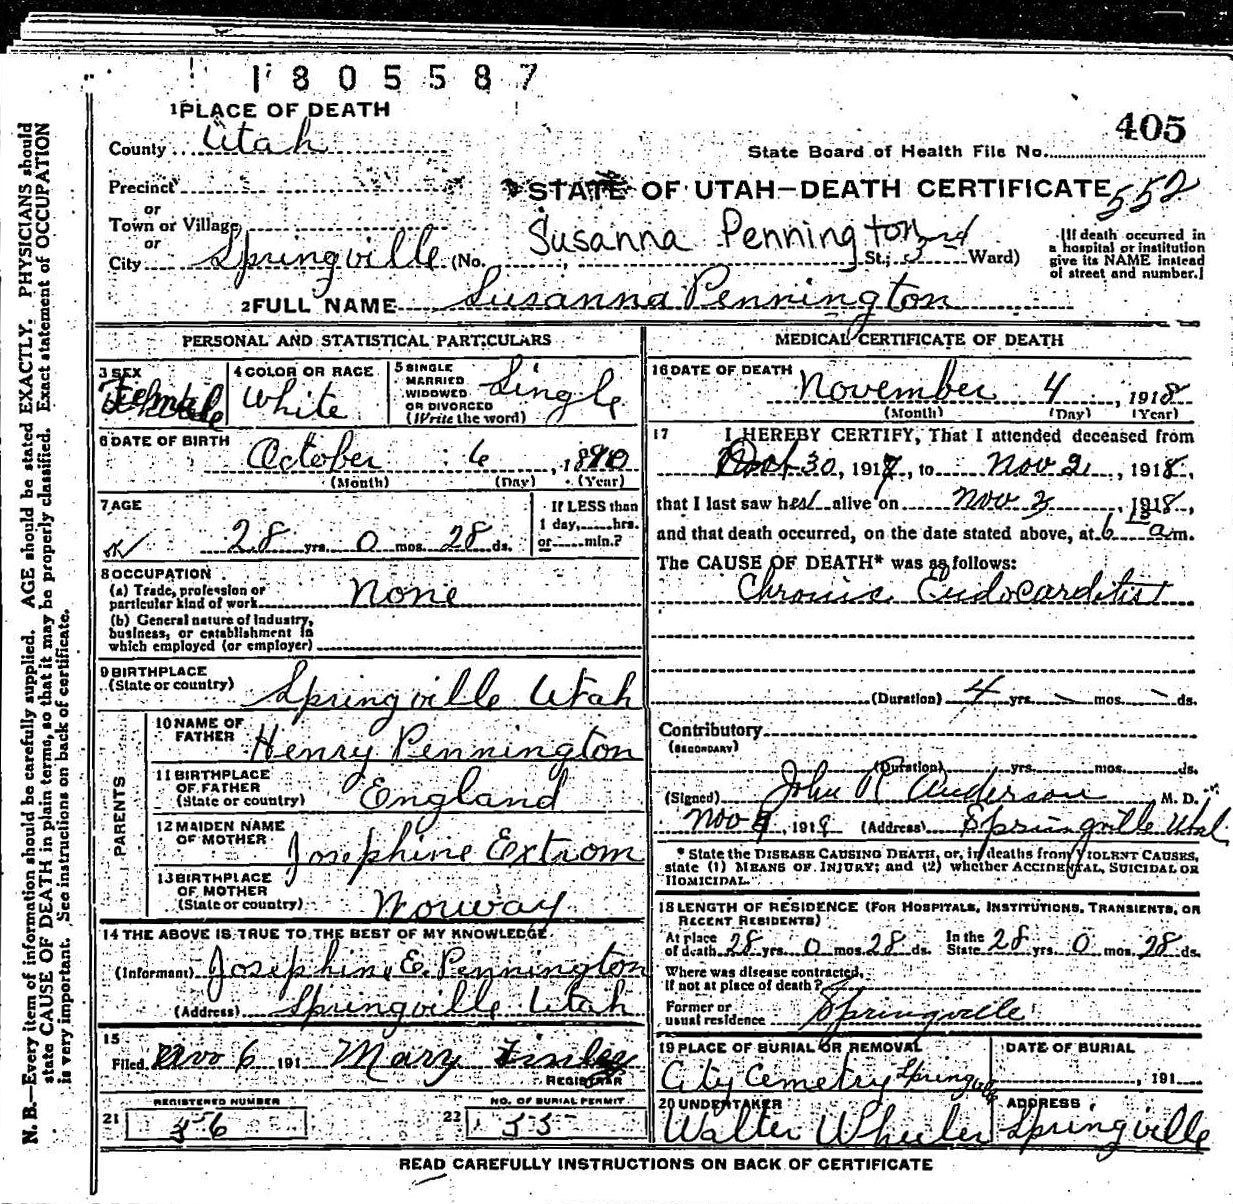 1805587
1 PLACE OF DEATH
405
County Utah
State Board of Health File No.
Precinct
STATE OF UTAH—DEATH CERTIFICATE
552
or
Town or Village
Susanna Pennington
or
City Springville (No. St.; 3rd Ward)
(If death occurred in
a hospital or institution
give its NAME instead
of street and number.)
2 FULL NAME Susanna Pennington
PERSONAL AND STATISTICAL PARTICULARS
3 SEX
Female
4 COLOR OR RACE
White
5 SINGLE
MARRIED
WIDOWED
OR DIVORCED
(Write the word)
Single
6 DATE OF BIRTH
October 6, 1890
(Month) (Day) (Year)
7 AGE
28 yrs. 0 mos. 28 ds.
If LESS than
1 day, hrs.
or min.?
8 OCCUPATION
(a) Trade, profession or
particular kind of work None
(b) General nature of industry,
business, or establishment in
which employed (or employer)
9 BIRTHPLACE
(State or country) Springville Utah
PARENTS
10 NAME OF
FATHER Henry Pennington
11 BIRTHPLACE
OF FATHER
(State or country) England
12 MAIDEN NAME
OF MOTHER Josephine Extrom
13 BIRTHPLACE
OF MOTHER
(State or country) Norway
14 THE ABOVE IS TRUE TO THE BEST OF MY KNOWLEDGE
(Informant) Josephine E. Pennington
(Address) Springville Utah
15
Filed Nov 6 191 Mary Finley
REGISTRAR
REGISTERED NUMBER
21 56
NO. OF BURIAL PERMIT
22 55
MEDICAL CERTIFICATE OF DEATH
16 DATE OF DEATH
November 4, 1918
(Month) (Day) (Year)
17 I HEREBY CERTIFY, That I attended deceased from
Oct 30, 191 , to Nov 2, 1918,
that I last saw her alive on Nov 3, 1918,
and that death occurred, on the date stated above, at 6 15 a m.
The CAUSE OF DEATH* was as follows:
Chronic Endocarditis
(Duration) 4 yrs. - mos. - ds.
Contributory
(SECONDARY)
(Duration) yrs. mos. ds.
(Signed) John R Anderson M. D.
Nov , 191 (Address) Springville Utah
* State the DISEASE CAUSING DEATH, or, in deaths from VIOLENT CAUSES,
state (1) MEANS OF INJURY; and (2) whether ACCIDENTAL, SUICIDAL OR
HOMICIDAL.
18 LENGTH OF RESIDENCE (FOR HOSPITALS, INSTITUTIONS, TRANSIENTS, OR
RECENT RESIDENTS)
At place of death 28 yrs. 0 mos. 28 ds. In the State 28 yrs. 0 mos. 28 ds.
Where was disease contracted,
If not at place of death?
Former or
usual residence Springville
19 PLACE OF BURIAL OR REMOVAL
City Cemetry Springville
DATE OF BURIAL
, 191
20 UNDERTAKER
Walter Wheeler
ADDRESS
Springville
READ CAREFULLY INSTRUCTIONS ON BACK OF CERTIFICATE
N. B.—Every item of information should be carefully supplied. AGE should be stated EXACTLY. PHYSICIANS should
state CAUSE OF DEATH in plain terms, so that it may be properly classified. Exact statement of OCCUPATION
is very important. See instructions on back of certificate.